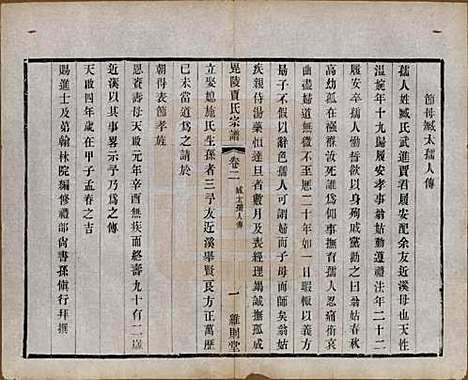 節母臧太孺人傳
孺人姓臧氏武進賈君履安配余友近溪母也天性
溫婉年十九歸履安孝事翁姑克遵禮法年二十二
履安卒孺人慟誓以身殉戚黨勸之曰翁姑春秋
高幼孩誰屬死無為也孺人為停哀撫育孺人侍翁姑
曲盡婦道無間于歷二十年如一日暇輒以義方
勗子不假聲色若孺人可謂婦而子母而師矣翁姑
疾親侍湯藥恒達旦者數月及喪經理竭誠撫孤成
毘陵賈氏宗譜
卷二
臧太孺人傳
一
雒則堂
立娶媳施氏生孫者三予友近溪舉賢良方正萬歷
己未當道為之請於
朝得表節孝族
恩賚壽母天啟元年辛酉無疾而終壽九十有二歲
近溪以其事畧示予乃為之傳
天啟四年歲在甲子孟春之吉
賜進士及第翰林院編修禮部尚書孫慎行拜撰